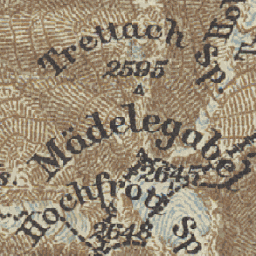 Trettach
Sp.
2595
Mädelegabel
2645
Hochfrott
Sp
2648